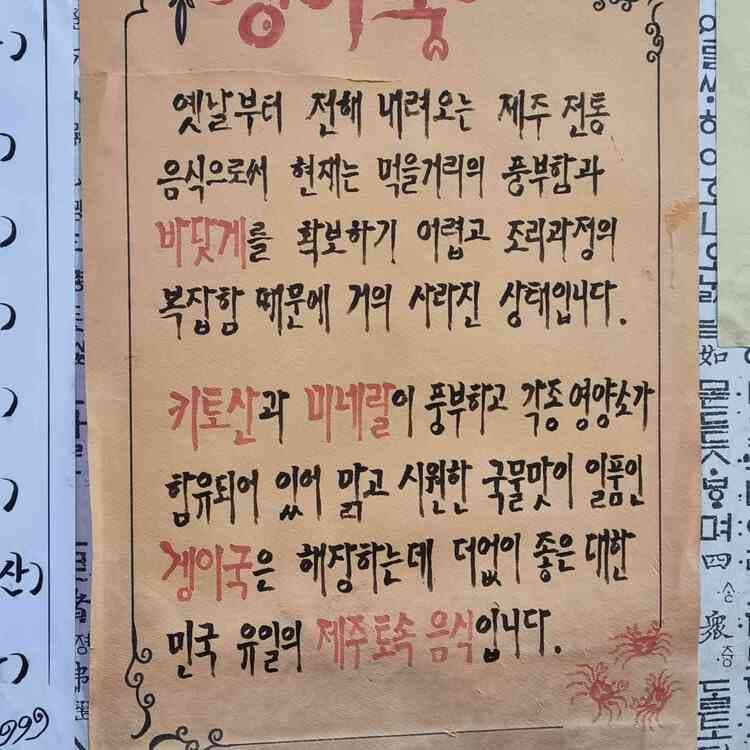 겡이국
옛날부터 전해 내려오는 제주 전통
음식으로써 현재는 먹을거리의 풍부함과
바닷게를 확보하기 어렵고 조리과정의
복잡함 때문에 거의 사라진 상태입니다.
키토산과 미네랄이 풍부하고 각종 영양소가
함유되어 있어 맑고 시원한 국물맛이 일품인
겡이국은 해장하는데 더없이 좋은 대한
민국 유일의 제주토속 음식입니다.